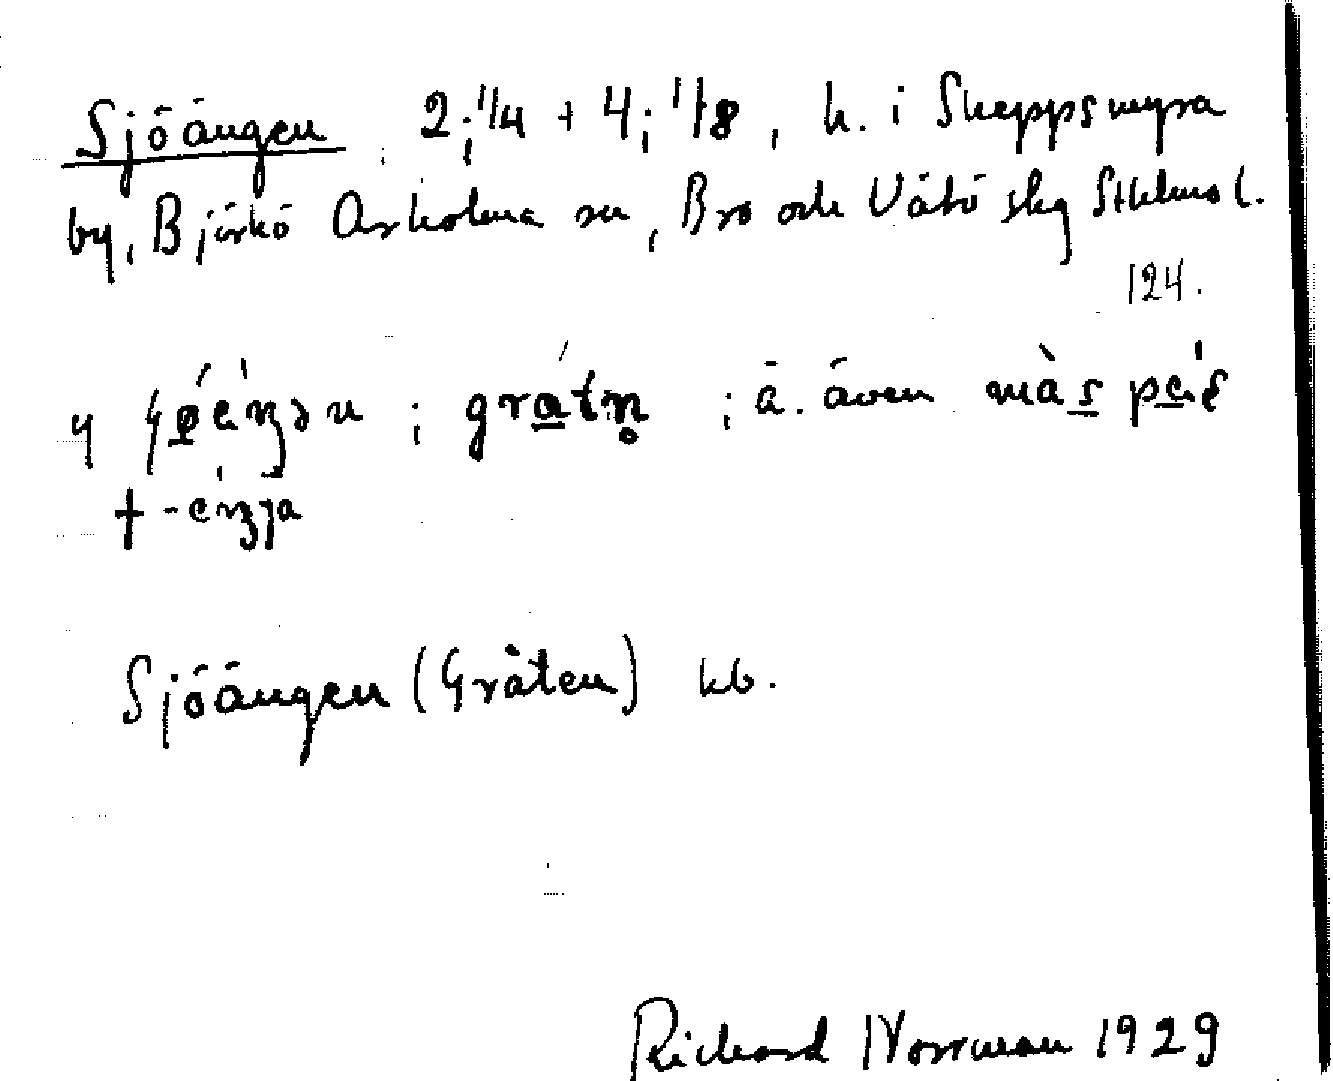 Sjöängen 2; 1/4 + 4; 1/8, h. i Skeppsmyra
by, Björkö Arholma sn, Bro och Vätö skg Sthlms l.
124.
; gråtn̥ ; ä. även
Sjöängen (Gråten) kb.
Richard Norrman 1929